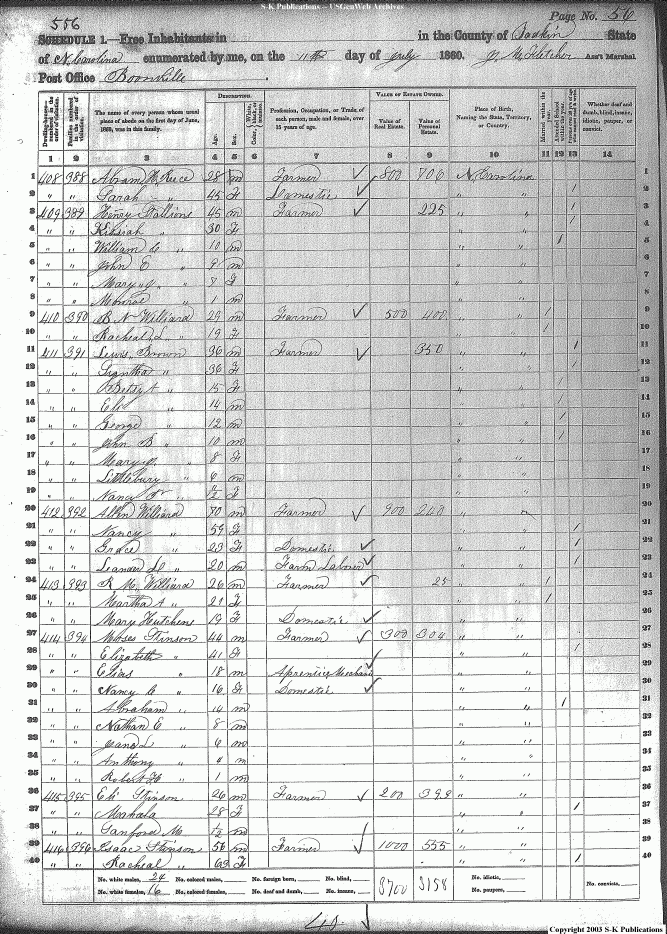 S-K Publications – USGenWeb Archives
556
Page No. 56
SCHEDULE 1.—Free Inhabitants in in the County of Yadkin State
of N. Carolina enumerated by me, on the 11th day of July 1860. J. M. Fletcher Ass't Marshal.
Post Office Boonville
Dwelling-houses numbered in the order of visitation. Families numbered in the order of visitation. The name of every person whose usual place of abode on the first day of June, 1860, was in this family. DESCRIPTION. Age. Sex. Color, Profession, Occupation, or Trade of each person, male and female, over 15 years of age. VALUE OF ESTATE OWNED. Value of Real Estate. Value of Personal Estate. Place of Birth, Naming the State, Territory, or Country. Married within the year. Attended School within the year. Whether deaf and dumb, blind, insane, idiotic, pauper, or convict.
1 2 3 4 5 6 7 8 9 10 11 12 13 14
1 408 388 Abram W. Reece 28 m Farmer 800 706 N Carolina 1
2 " " Sarah " 45 F Domestic " " / 2
3 409 389 Henry Stallions 45 m Farmer 225 " " / 3
4 " " Keisiah " 30 F " " / 4
5 " " William C " 10 m " " / 5
6 " " John E " 9 m " " 6
7 " " Mary J " 7 F " " 7
8 " " Monroe " 1 m " " 8
9 410 390 B. N. Williard 29 m Farmer 500 400 " " / 9
10 " " Racheal L " 19 F " " / 10
11 411 391 Lewis Brown 36 m Farmer 350 " " / 11
12 " " " 36 F " " / 12
13 " " Betsy A " 15 F " " / 13
14 " " Eli " 14 m " " / 14
15 " " George " 12 m " " / 15
16 " " John B " 10 m " " / 16
17 " " Mary J. " 8 F " " 17
18 " " Littlebury " 6 m " " 18
19 " " Nancy " F " " 19
20 412 392 Allen Williard 70 m Farmer 900 240 " " 20
21 " " Nancy " 59 F " " / 21
22 " " Grace " 23 F Domestic " " / 22
23 " " Leander D " 20 m Farm Laborer " " / 23
24 413 393 R M. Williard 26 m Farmer 25 " " / 24
25 " " Martha A " 21 F " " / 25
26 " " Mary Hutchens 19 F Domestic " " 26
27 414 394 Moses Stinson 44 m Farmer 300 304 " " / 27
28 " " Elizabeth " 41 F " " / 28
29 " " Elias " 18 m Apprentice Mechanic " " 29
30 " " Nancy C " 16 F Domestic " " 30
31 " " Abraham " 14 m " " / 31
32 " " Nathan E " 8 m " " 32
33 " " " 6 m " " 33
34 " " Anthony " 4 m " " 34
35 " " Robert H " 1 m " " 35
36 415 395 Eli Stinson 26 m Farmer 200 399 " " 36
37 " " Mahala 28 F " " / 37
38 " " Sanford M. m " " 38
39 416 396 Isaac Stinson 56 m Farmer 1000 555 " " / 39
40 " " Racheal " 63 F " " / 40
No. white males, 24 No. colored males, No. foreign born, No. blind, 3700 3158 No. idiotic, No. convicts,
No. white females, 16 No. colored females, No. deaf and dumb, No. insane, No. paupers,
40
Copyright 2003 S-K Publications